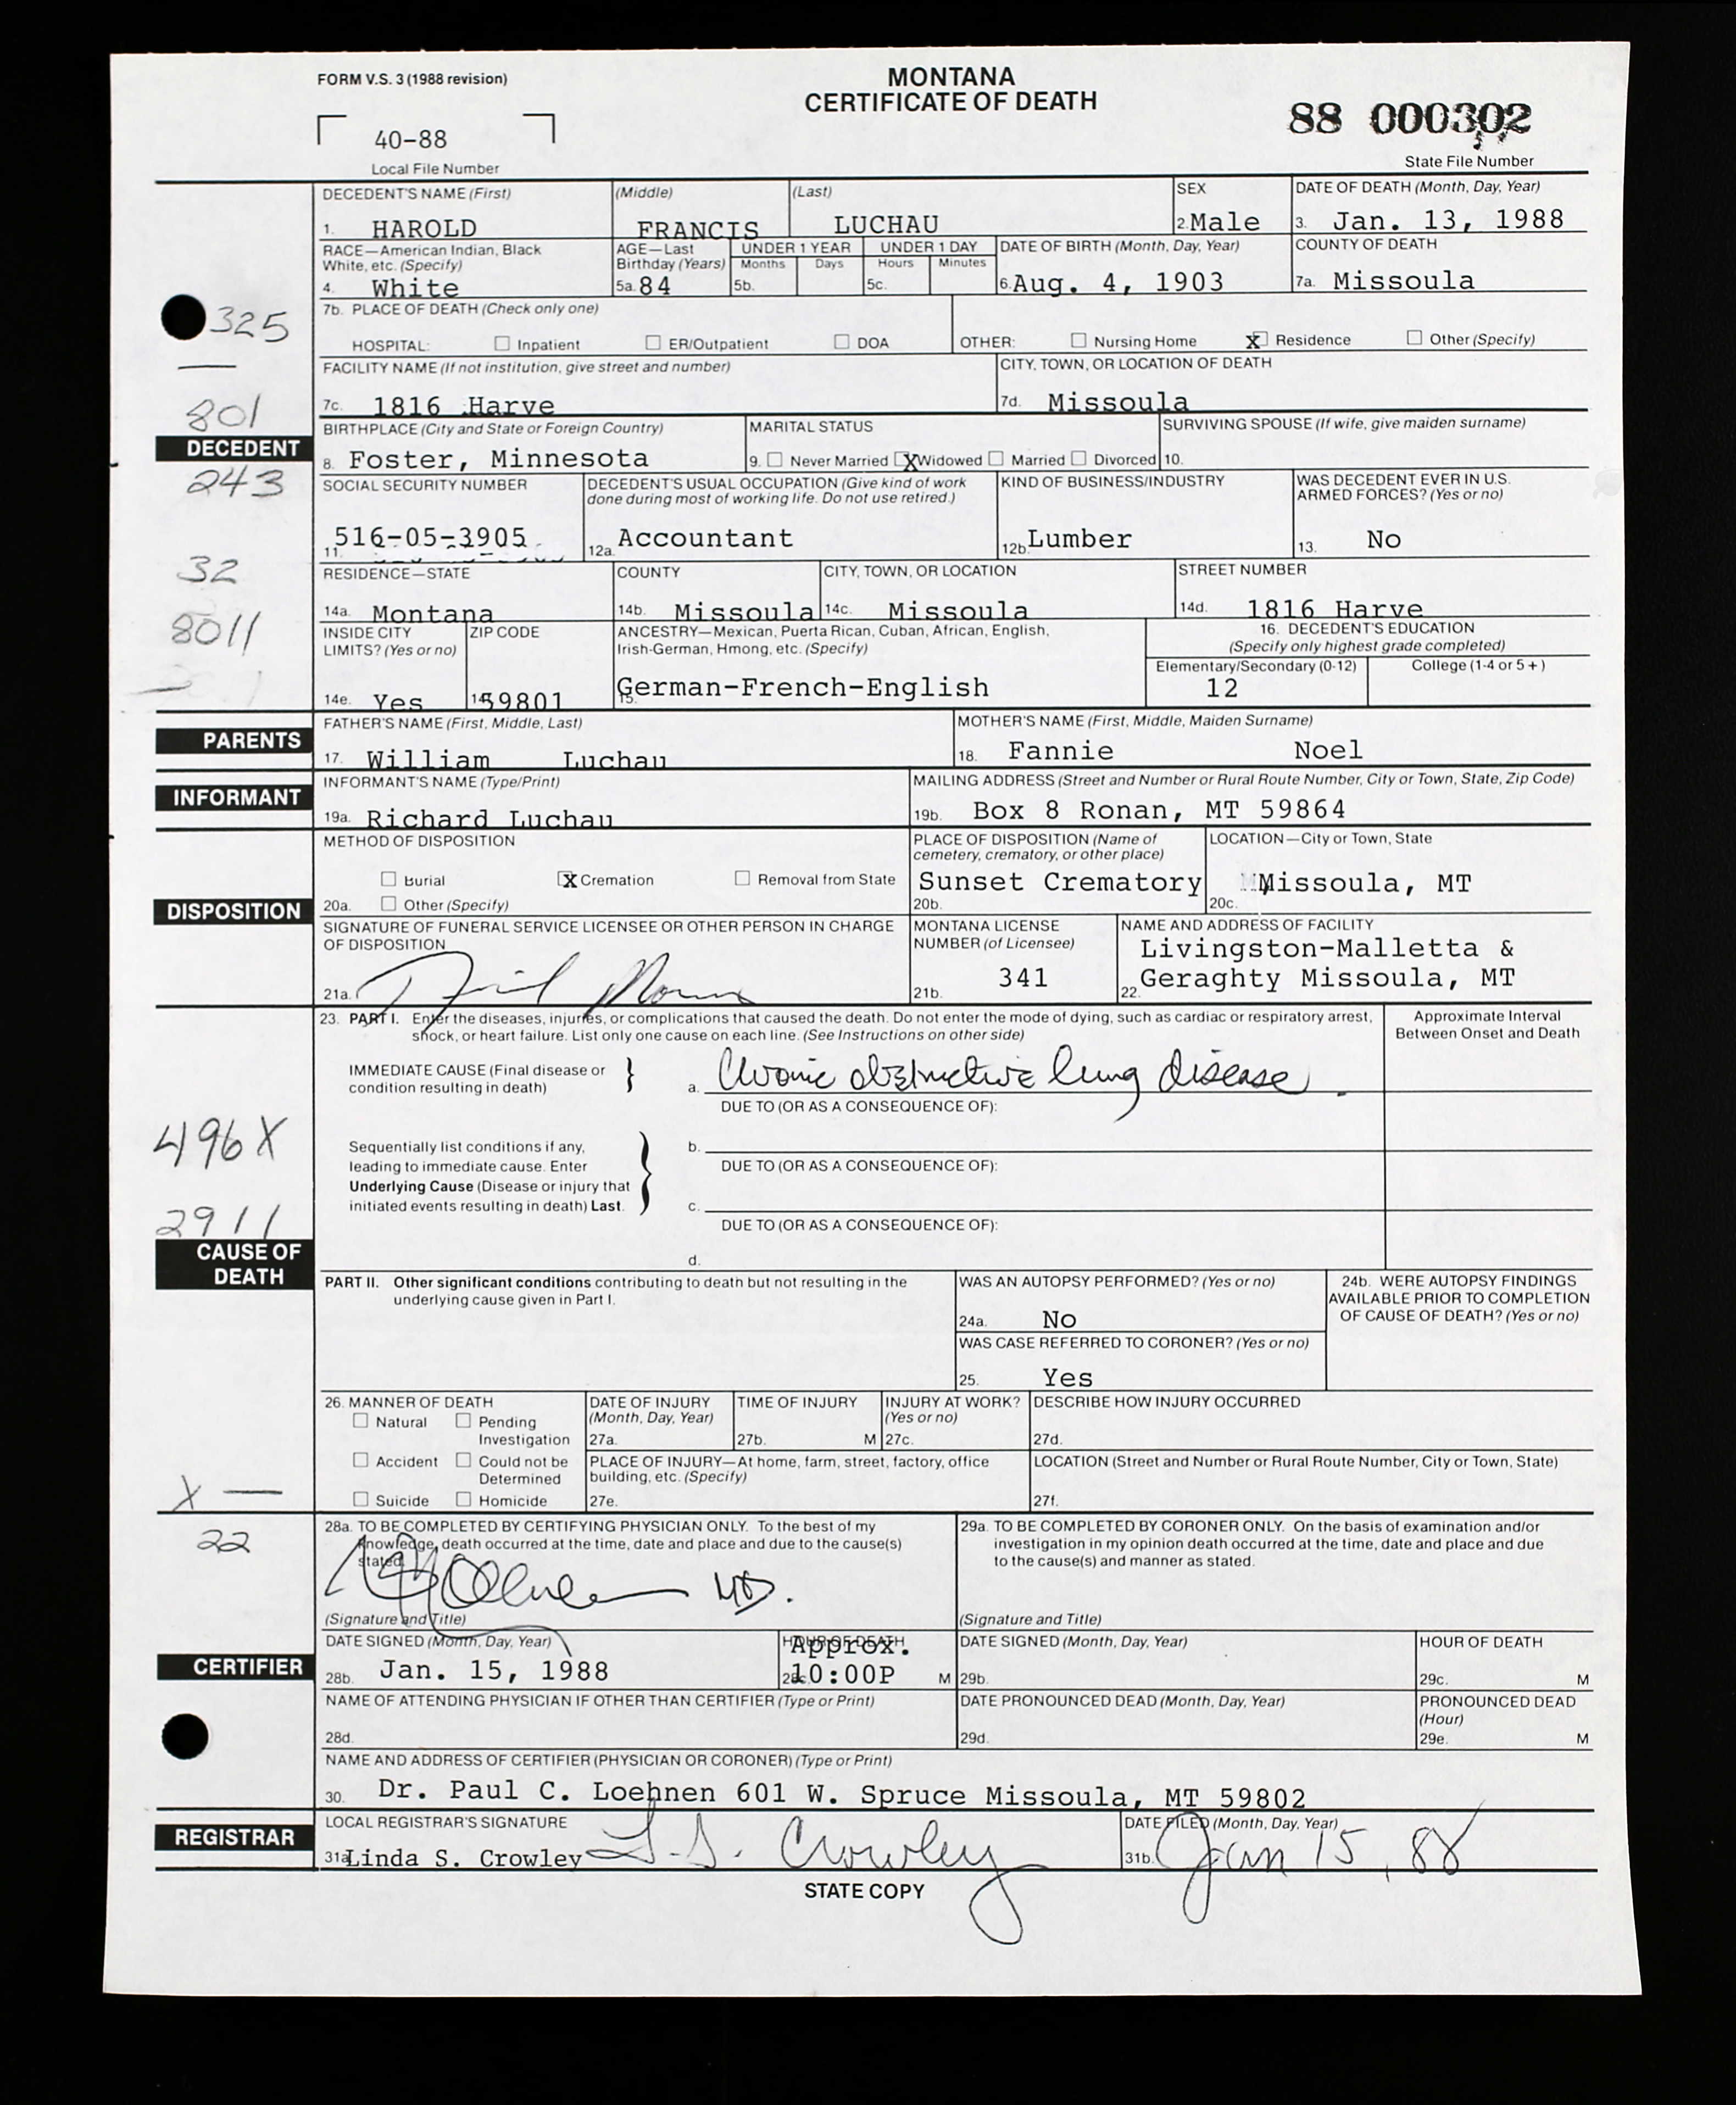 FORM V.S. 3 (1988 revision)
MONTANA
CERTIFICATE OF DEATH
88 000302
State File Number
40-88
Local File Number
DECEDENT'S NAME (First) (Middle) (Last) SEX DATE OF DEATH (Month, Day, Year)
1. HAROLD FRANCIS LUCHAU 2. Male 3. Jan. 13, 1988
RACE—American Indian, Black AGE—Last UNDER 1 YEAR UNDER 1 DAY DATE OF BIRTH (Month, Day, Year) COUNTY OF DEATH
White, etc. (Specify) Birthday (Years) Months Days Hours Minutes
4. White 5a. 84 5b. 5c. 6. Aug. 4, 1903 7a. Missoula
325
7b. PLACE OF DEATH (Check only one)
HOSPITAL: Inpatient ER/Outpatient DOA OTHER: Nursing Home X Residence Other (Specify)
FACILITY NAME (If not institution, give street and number) CITY, TOWN, OR LOCATION OF DEATH
7c. 1816 Harve 7d. Missoula
801
BIRTHPLACE (City and State or Foreign Country) MARITAL STATUS SURVIVING SPOUSE (If wife, give maiden surname)
DECEDENT
8. Foster, Minnesota 9. Never Married X Widowed Married Divorced 10.
243
SOCIAL SECURITY NUMBER DECEDENT'S USUAL OCCUPATION (Give kind of work KIND OF BUSINESS/INDUSTRY WAS DECEDENT EVER IN U.S.
done during most of working life. Do not use retired.) ARMED FORCES? (Yes or no)
11. 516-05-3905 12a. Accountant 12b. Lumber 13. No
32
RESIDENCE—STATE COUNTY CITY, TOWN, OR LOCATION STREET NUMBER
14a. Montana 14b. Missoula 14c. Missoula 14d. 1816 Harve
8011
INSIDE CITY ZIP CODE ANCESTRY—Mexican, Puerta Rican, Cuban, African, English, 16. DECEDENT'S EDUCATION
LIMITS? (Yes or no) Irish-German, Hmong, etc. (Specify) (Specify only highest grade completed)
Elementary/Secondary (0-12) College (1-4 or 5 + )
14e. Yes 14 59801 15. German-French-English 12
FATHER'S NAME (First, Middle, Last) MOTHER'S NAME (First, Middle, Maiden Surname)
PARENTS
17. William Luchau 18. Fannie Noel
INFORMANT'S NAME (Type/Print) MAILING ADDRESS (Street and Number or Rural Route Number, City or Town, State, Zip Code)
INFORMANT
19a. Richard Luchau 19b. Box 8 Ronan, MT 59864
METHOD OF DISPOSITION PLACE OF DISPOSITION (Name of LOCATION—City or Town, State
cemetery, crematory, or other place)
Burial X Cremation Removal from State Sunset Crematory Missoula, MT
20a. Other (Specify) 20b. 20c.
DISPOSITION
SIGNATURE OF FUNERAL SERVICE LICENSEE OR OTHER PERSON IN CHARGE MONTANA LICENSE NAME AND ADDRESS OF FACILITY
OF DISPOSITION NUMBER (of Licensee) Livingston-Malletta &
21a. 21b. 341 22. Geraghty Missoula, MT
23. PART I. Enter the diseases, injuries, or complications that caused the death. Do not enter the mode of dying, such as cardiac or respiratory arrest, Approximate Interval
shock, or heart failure. List only one cause on each line. (See Instructions on other side) Between Onset and Death
IMMEDIATE CAUSE (Final disease or
condition resulting in death) a. Chronic obstructive lung disease
DUE TO (OR AS A CONSEQUENCE OF):
496X
Sequentially list conditions if any, b.
leading to immediate cause. Enter DUE TO (OR AS A CONSEQUENCE OF):
Underlying Cause (Disease or injury that
initiated events resulting in death) Last. c.
2911
DUE TO (OR AS A CONSEQUENCE OF):
CAUSE OF
DEATH
d.
PART II. Other significant conditions contributing to death but not resulting in the WAS AN AUTOPSY PERFORMED? (Yes or no) 24b. WERE AUTOPSY FINDINGS
underlying cause given in Part I. AVAILABLE PRIOR TO COMPLETION
24a. No OF CAUSE OF DEATH? (Yes or no)
WAS CASE REFERRED TO CORONER? (Yes or no)
25. Yes
26. MANNER OF DEATH DATE OF INJURY TIME OF INJURY INJURY AT WORK? DESCRIBE HOW INJURY OCCURRED
Natural Pending (Month, Day, Year) (Yes or no)
Investigation 27a. 27b. M 27c. 27d.
Accident Could not be PLACE OF INJURY—At home, farm, street, factory, office LOCATION (Street and Number or Rural Route Number, City or Town, State)
Determined building, etc. (Specify)
X —
Suicide Homicide 27e. 27f.
22
28a. TO BE COMPLETED BY CERTIFYING PHYSICIAN ONLY. To the best of my 29a. TO BE COMPLETED BY CORONER ONLY. On the basis of examination and/or
knowledge, death occurred at the time, date and place and due to the cause(s) investigation in my opinion death occurred at the time, date and place and due
stated. to the cause(s) and manner as stated.
MD.
(Signature and Title) (Signature and Title)
DATE SIGNED (Month, Day, Year) HOUR OF DEATH Approx. DATE SIGNED (Month, Day, Year) HOUR OF DEATH
CERTIFIER
28b. Jan. 15, 1988 28c. 10:00P M 29b. 29c. M
NAME OF ATTENDING PHYSICIAN IF OTHER THAN CERTIFIER (Type or Print) DATE PRONOUNCED DEAD (Month, Day, Year) PRONOUNCED DEAD
(Hour)
28d. 29d. 29e. M
NAME AND ADDRESS OF CERTIFIER (PHYSICIAN OR CORONER) (Type or Print)
30. Dr. Paul C. Loehnen 601 W. Spruce Missoula, MT 59802
LOCAL REGISTRAR'S SIGNATURE DATE FILED (Month, Day, Year)
REGISTRAR
31a Linda S. Crowley L.S. Crowley 31b. Jan 15, 88
STATE COPY